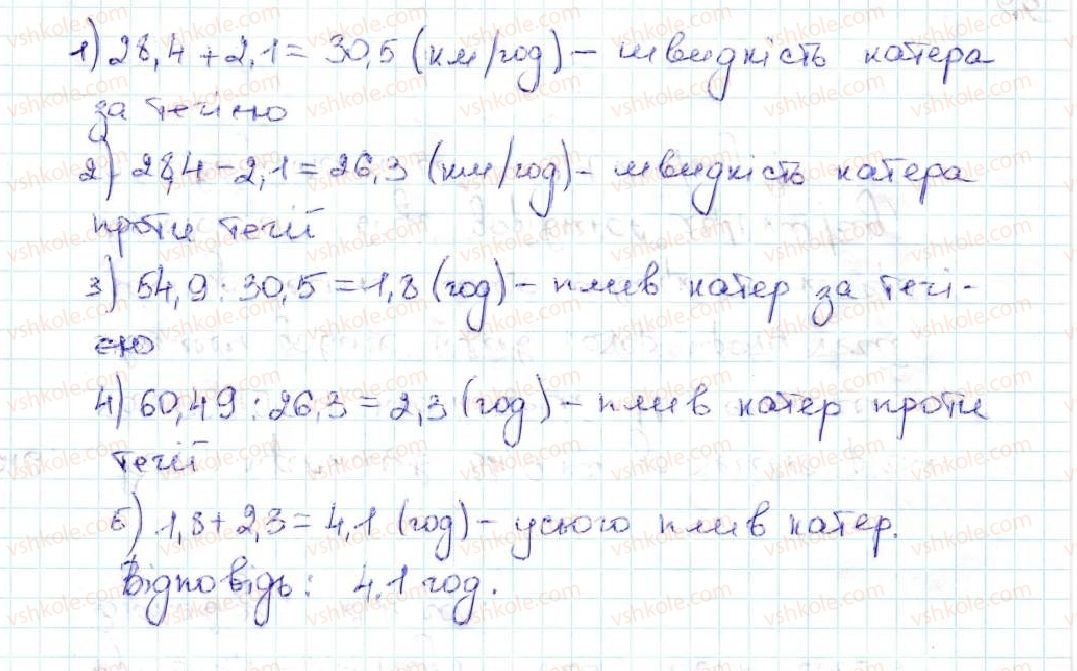 1) 28,4 + 2,1 = 30,5 (км/год) – швидкість катера
за течією
2) 28,4 – 2,1 = 26,3 (км/год) – швидкість катера
проти течії
3) 54,9 : 30,5 = 1,8 (год) – плив катер за течі-
єю
4) 60,49 : 26,3 = 2,3 (год) – плив катер проти
течії
5) 1,8 + 2,3 = 4,1 (год) – усього плив катер.
Відповідь: 4,1 год.